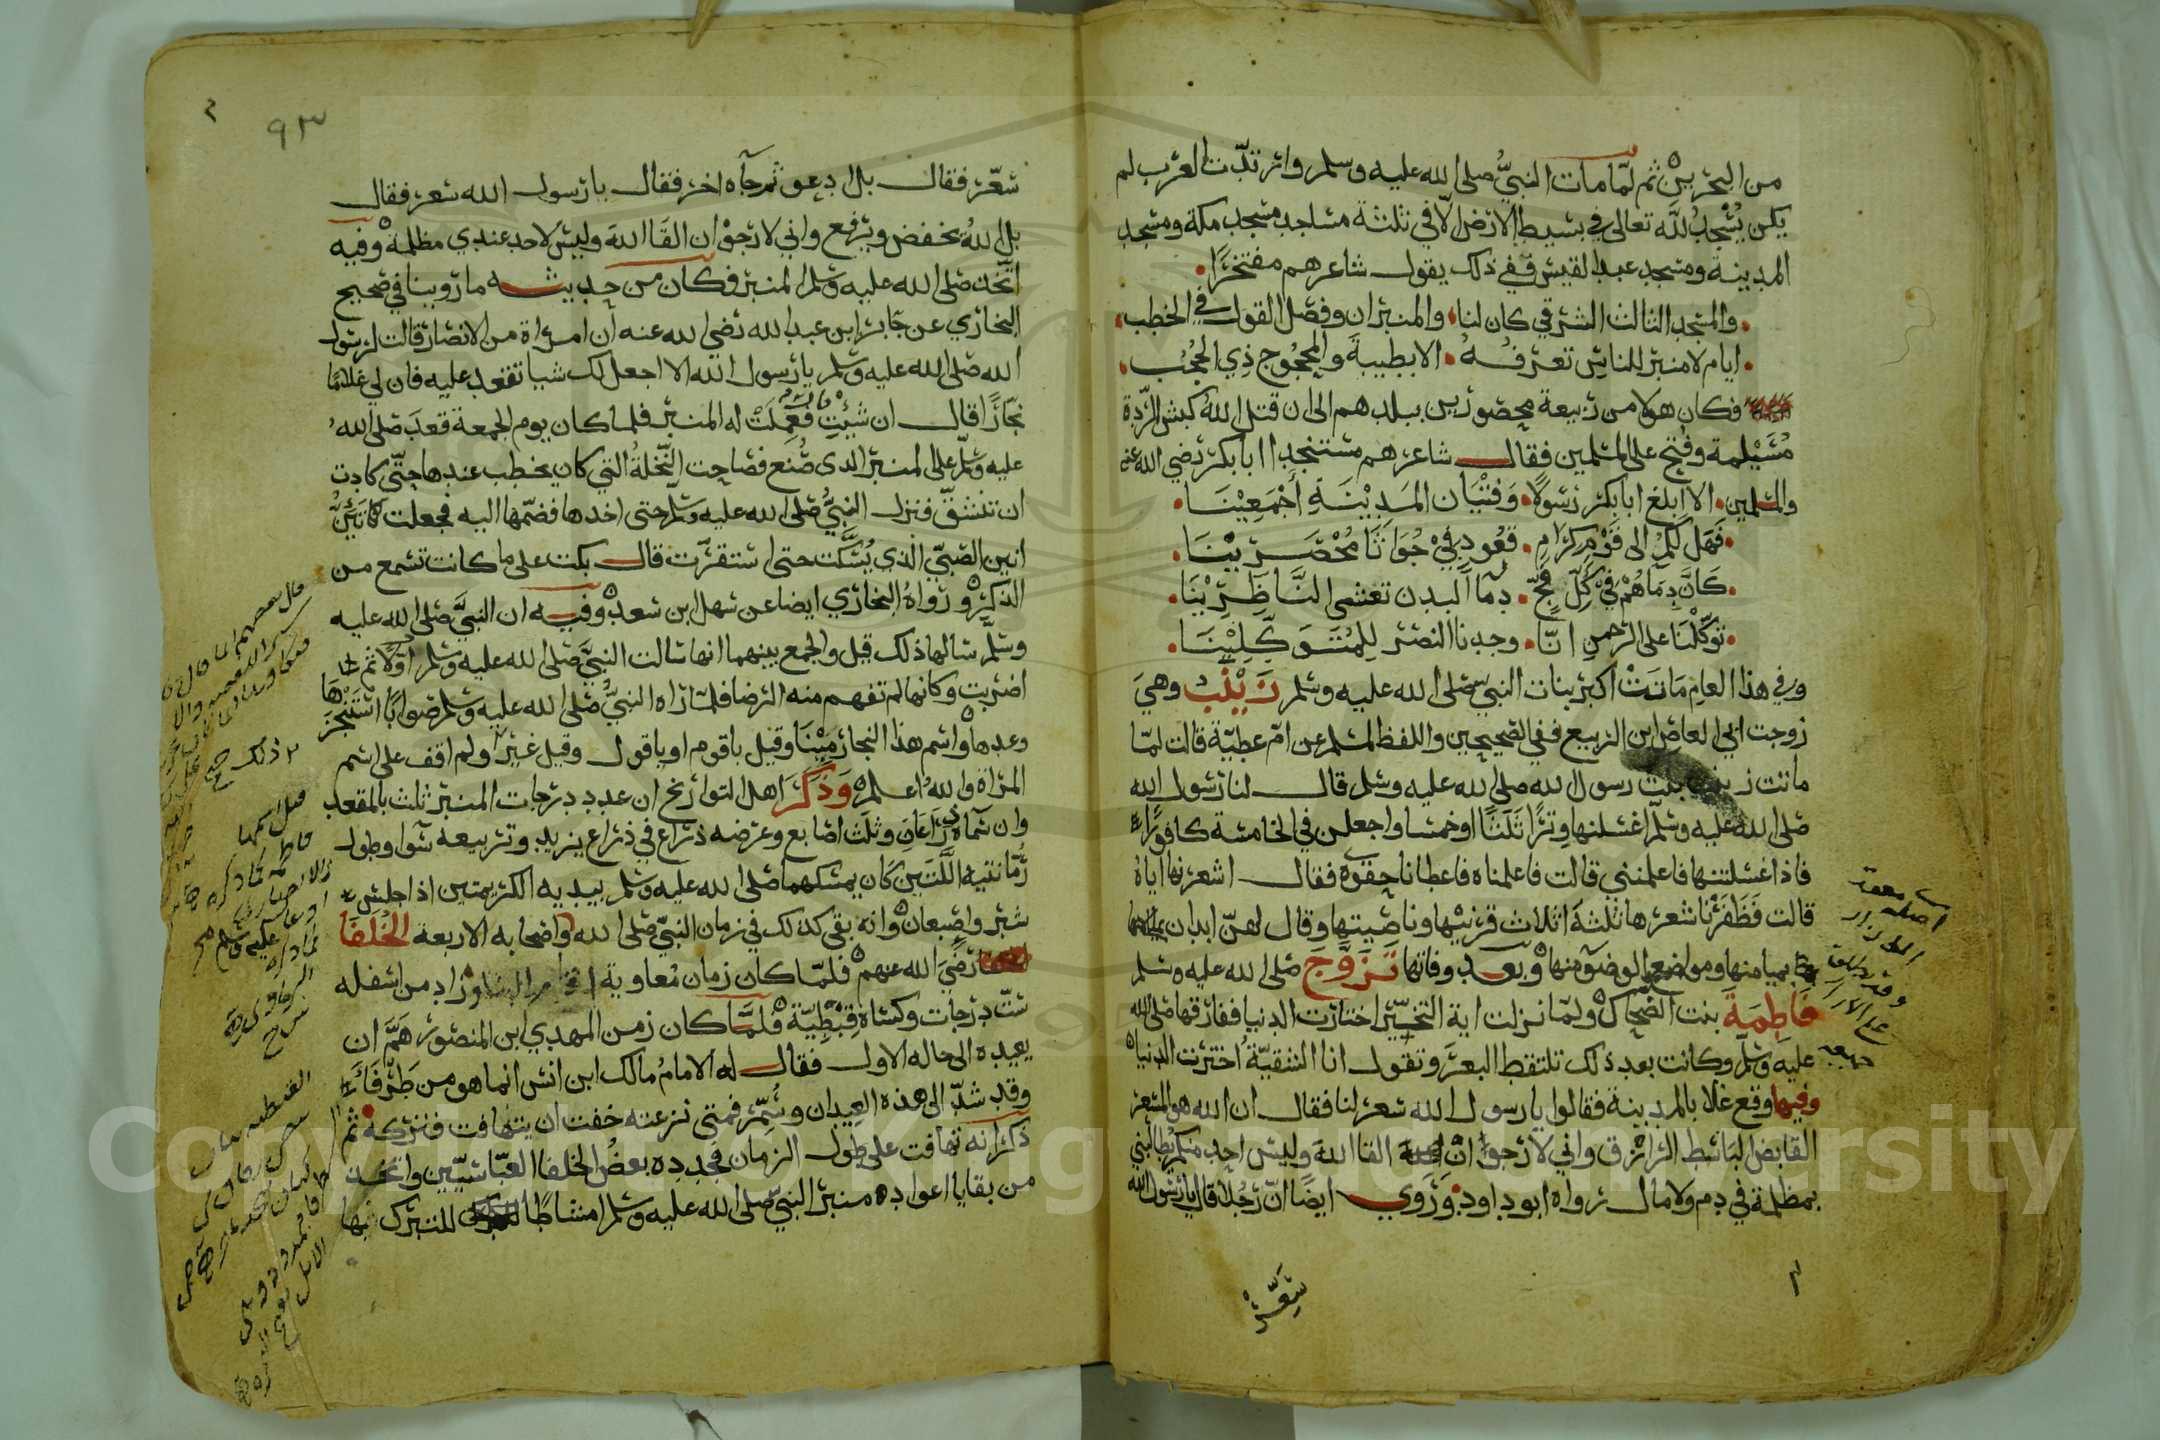 من البحرين ثم لما مات النبي صلى الله عليه وسلم وارتدت العرب لم
يكن يسجد لله تعالى في بسيط الارض الا في ثلثة مساجد مسجد مكة ومسجد
المدينة ومسجد عبد القيس ففي ذلك يقول شاعرهم مفتخرا
والمسجد الثالث الشرقي كان لنا والمنبران وفصل القول في الخطب
ايام لا منبر للناس تعرفه الا بطيبة والمحجوج ذي الحجب
فكان هولا من ربيعة محصورين ببلدهم الى ان قتل الله كبش الردة
مسيلمة وفتح على المسلمين فقال شاعرهم مستنجدا ابا بكر رضي الله عنه
والمسلمين الا ابلغ ابا بكر رسولا وفتيان المدينة أجمعينا
فهل لكم الى قوم كرام قعود في جواثا محصرينا
كان دماهم في كل فج دما البدن تغشى الناظرينا
توكلنا على الرحمن انا وجدنا النصر للمتوكلينا
وفي هذا العام ماتت اكبر بنات النبي صلى الله عليه وسلم زينب وهي
زوجت ابي العاص ابن الربيع ففي الصحيحين واللفظ لمسلم عن ام عطية قالت لما
ماتت زينب بنت رسول الله صلى الله عليه وسلم قال لنا رسول الله
صلى الله عليه وسلم اغسلنها وترا ثلثا او خمسا واجعلن في الخامسة كافورا
فاذا غسلتنها فاعلمنني قالت فاعلمناه فاعطانا حقوه فقال اشعرنها اياه
قالت فظفرنا شعرها ثلثة اثلاث قرنيها وناصيتها وقال لهن ابدان
بميامنها ومواضع الوضو منها وبعد وفاتها تزوج صلى الله عليه وسلم
فاطمة بنت الضحاك ولما نزلت اية التخيير اختارت الدنيا ففارقها صلى الله
عليه وسلم وكانت بعد ذلك تلتقط البعر وتقول انا الشقية اخترت الدنيا
وفيها وقع غلا بالمدينة فقالوا يا رسول الله سعر لنا فقال ان الله هو المسعر
القابض الباسط الرازق واني لارجوا ان القا الله وليس احد منكم يطالبني
بمظلمة في دم ولا مال رواه ابو داود وروي ايضا ان رجلا قال يا رسول الله
سعر
٩٣
سعر فقال بل ادعو ثم جآه اخر فقال يا رسول الله سعر فقال
بل الله يخفض ويرفع واني لارجو ان القا الله وليس لاحد عندي مظلمة وفيه
اتخذ صلى الله عليه وسلم المنبر فكان من حديثه ما روينا في صحيح
البخاري عن جابر ابن عبد الله رضي الله عنه ان امراة من الانصار قالت لرسول
الله صلى الله عليه وسلم يا رسول الله الا اجعل لك شيا تقعد عليه فان لي غلاما
نجارا قال ان شئت فعملت له المنبر فلما كان يوم الجمعة قعد صلى الله
عليه وسلم على المنبر الذي صنع فصاحت النخلة التي كان يخطب عندها حتى كادت
ان تنشق فنزل النبي صلى الله عليه وسلم حتى اخذها فضمها اليه فجعلت تئن
انين الصبي الذي يسكت حتى استقرت قال بكت على ما كانت تسمع من
الذكر ورواه البخاري ايضا عن سهل ابن سعد وفيه ان النبي صلى الله عليه
وسلم سالها ذلك قيل والجمع بينهما انها سالت النبي صلى الله عليه وسلم اولا ثم
اضربت وكانها لم تفهم منه الرضا فلما راه النبي صلى الله عليه وسلم صوابا استنجزها
وعدها واسم هذا النجار مينا وقيل باقوم او باقول وقيل غيره ولم اقف على اسم
المراة والله اعلم وذكر اهل التواريخ ان عدد درجات المنبر ثلث بالمقعد
وان سماه ذراعان وثلث اصابع وعرضه ذراع في ذراع يزيد وتربيعه سوا وطول
رمانتيه اللتين كان يمسكهما صلى الله عليه وسلم بيديه الكريمتين اذا جلس
شبر واصبعان وانه بقي كذلك في زمان النبي صلى الله واصحابه الاربعة الخلفا
رضي الله عنهم فلما كان زمان معاوية وزاد من اسفله
ست درجات وكساه قبطية فلما كان زمن المهدي ابن المنصور هم ان
يعيده الى حاله الاول فقال له الامام مالك ابن انس انما هو من طرفاء
وقد شد الى هذه العيدان وسمر فمتى نزعته خفت ان يتهافت فتركه ثم
ذكر انه تهافت على طول الزمان فجدده بعض الخلفا العباسيين واتخذ
من بقايا اعواده منبر النبي صلى الله عليه وسلم امشاطا للتبرك بها
Copyright © King Saud University